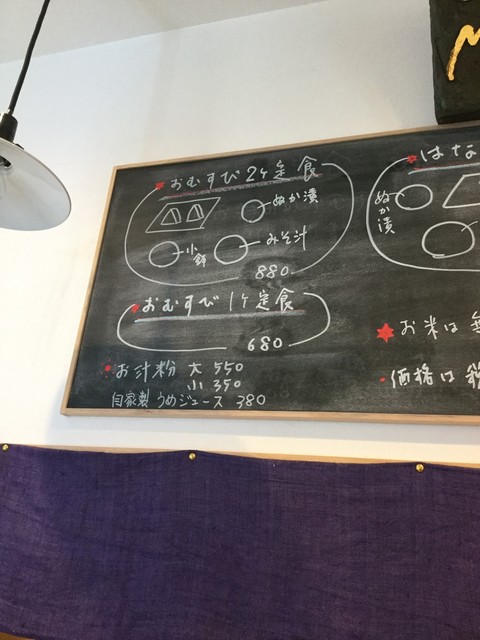 おむすび2ヶ定食
ぬか漬
小鉢
みそ汁
880
おむすび1ヶ定食
680
お汁粉 大 550
小 350
自家製 うめジュース 380
はな
ぬか漬
お米は
価格は